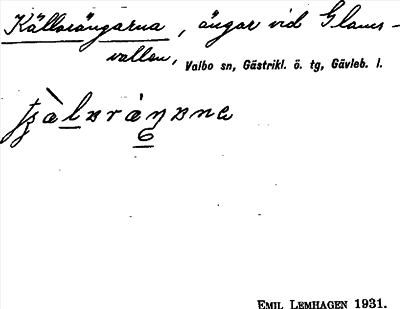 Källorängarna, ängar vid Glams-
vallen, Valbo sn, Gästrikl. ö. tg, Gävleb. l.
EMIL LEMHAGEN 1931.